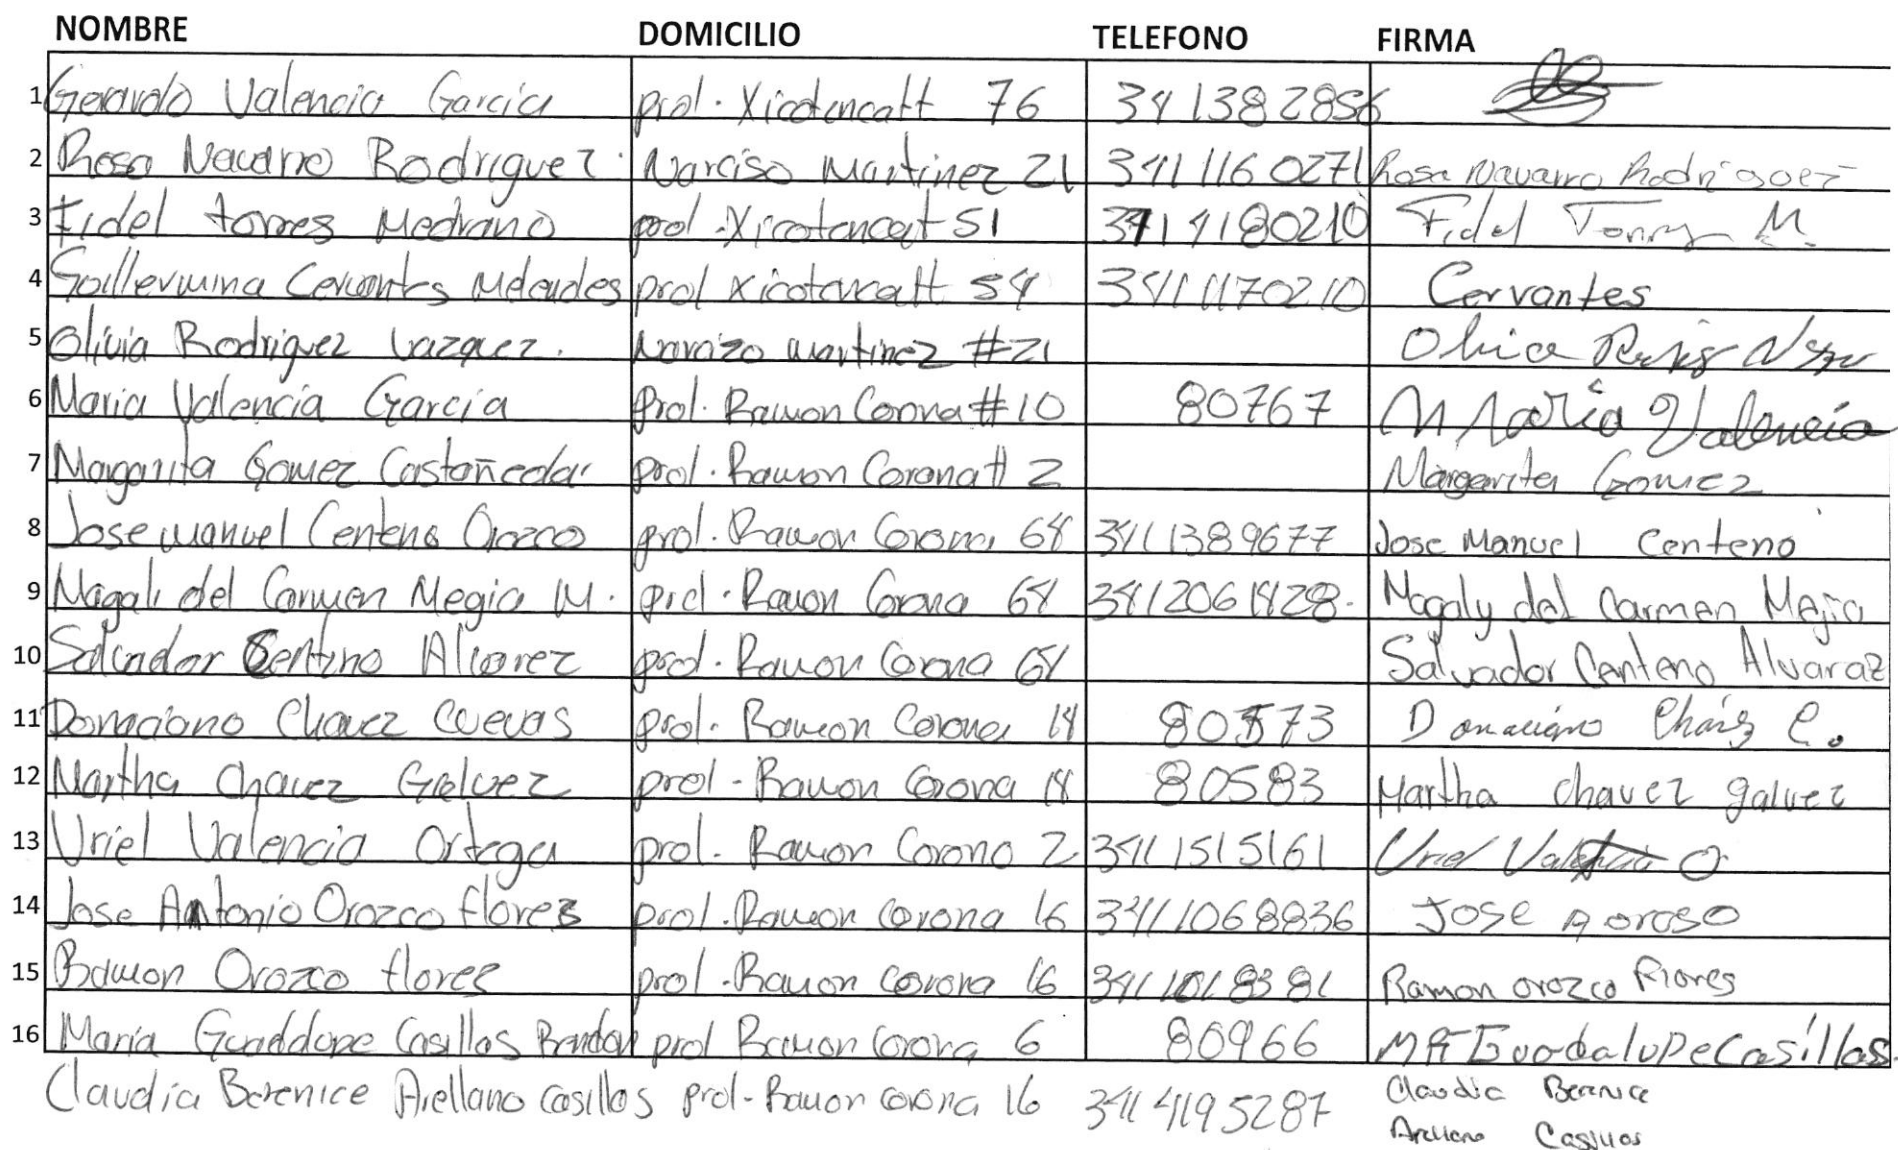 NOMBRE DOMICILIO TELEFONO FIRMA
1 Gerardo Valencia Garcia prol. Xicotencatt 76 3411382856
2 Rosa Navarro Rodriguez. Narciso Martinez 21 3411160271 Rosa Navarro Rodriguez
3 Fidel torres Medrano prol. Xicotencatt 51 3414180210 Fidel Torres M.
4 Guillermina Cervantes Melendes prol Xicotencatt 54 3411170210 Cervantes
5 Olivia Rodriguez Vazquez. Narcizo martinez #21 Olivia
6 Maria Valencia Garcia prol. Ramon Corona #10 80767 Maria Valencia
7 Margarita Gomez Castañeda prol. Ramon Corona # 2 Margarita Gomez
8 Jose manuel Centeno Orozco prol. Ramon Corona 64 3411389677 Jose Manuel Centeno
9 Magali del Carmen Megia M. prol. Ramon Corona 64 3412061428. Magaly del Carmen Mejia
10 Salvador Sentino Alvarez prol. Ramon Corona 64 Salvador Centeno Alvaraz
11 Donaciano Chavez Cuevas prol. Ramon Corona 14 80573 Donaciano Cháv́ez C.
12 Martha Chavez Galvez prol - Ramon Corona 14 80583 Martha chavez galvez
13 Uriel Valencia Ortega prol. Ramon Corona 2 3411515161 Uriel Valencia O
14 Jose Antonio Orozco flores prol. Ramon Corona 16 3411068836 Jose A oroso
15 Ramon Orozco flores prol. Ramon Corona 16 3411018381 Ramon orozco Flores
16 Maria Guadalupe Casillas prol Ramon Corona 6 80966 Mª Guadalupe Casillas.
Claudia Berenice Arellano Casillas prol- Ramon Corona 16 3414195287 Claudia Berenice
Arellano Casillas